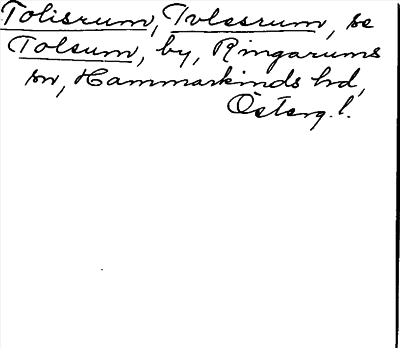 Tolisrum, Tvlesrum, se
Tolsum, by, Ringarums
sn, Hammarkinds hd,
Österg. l.